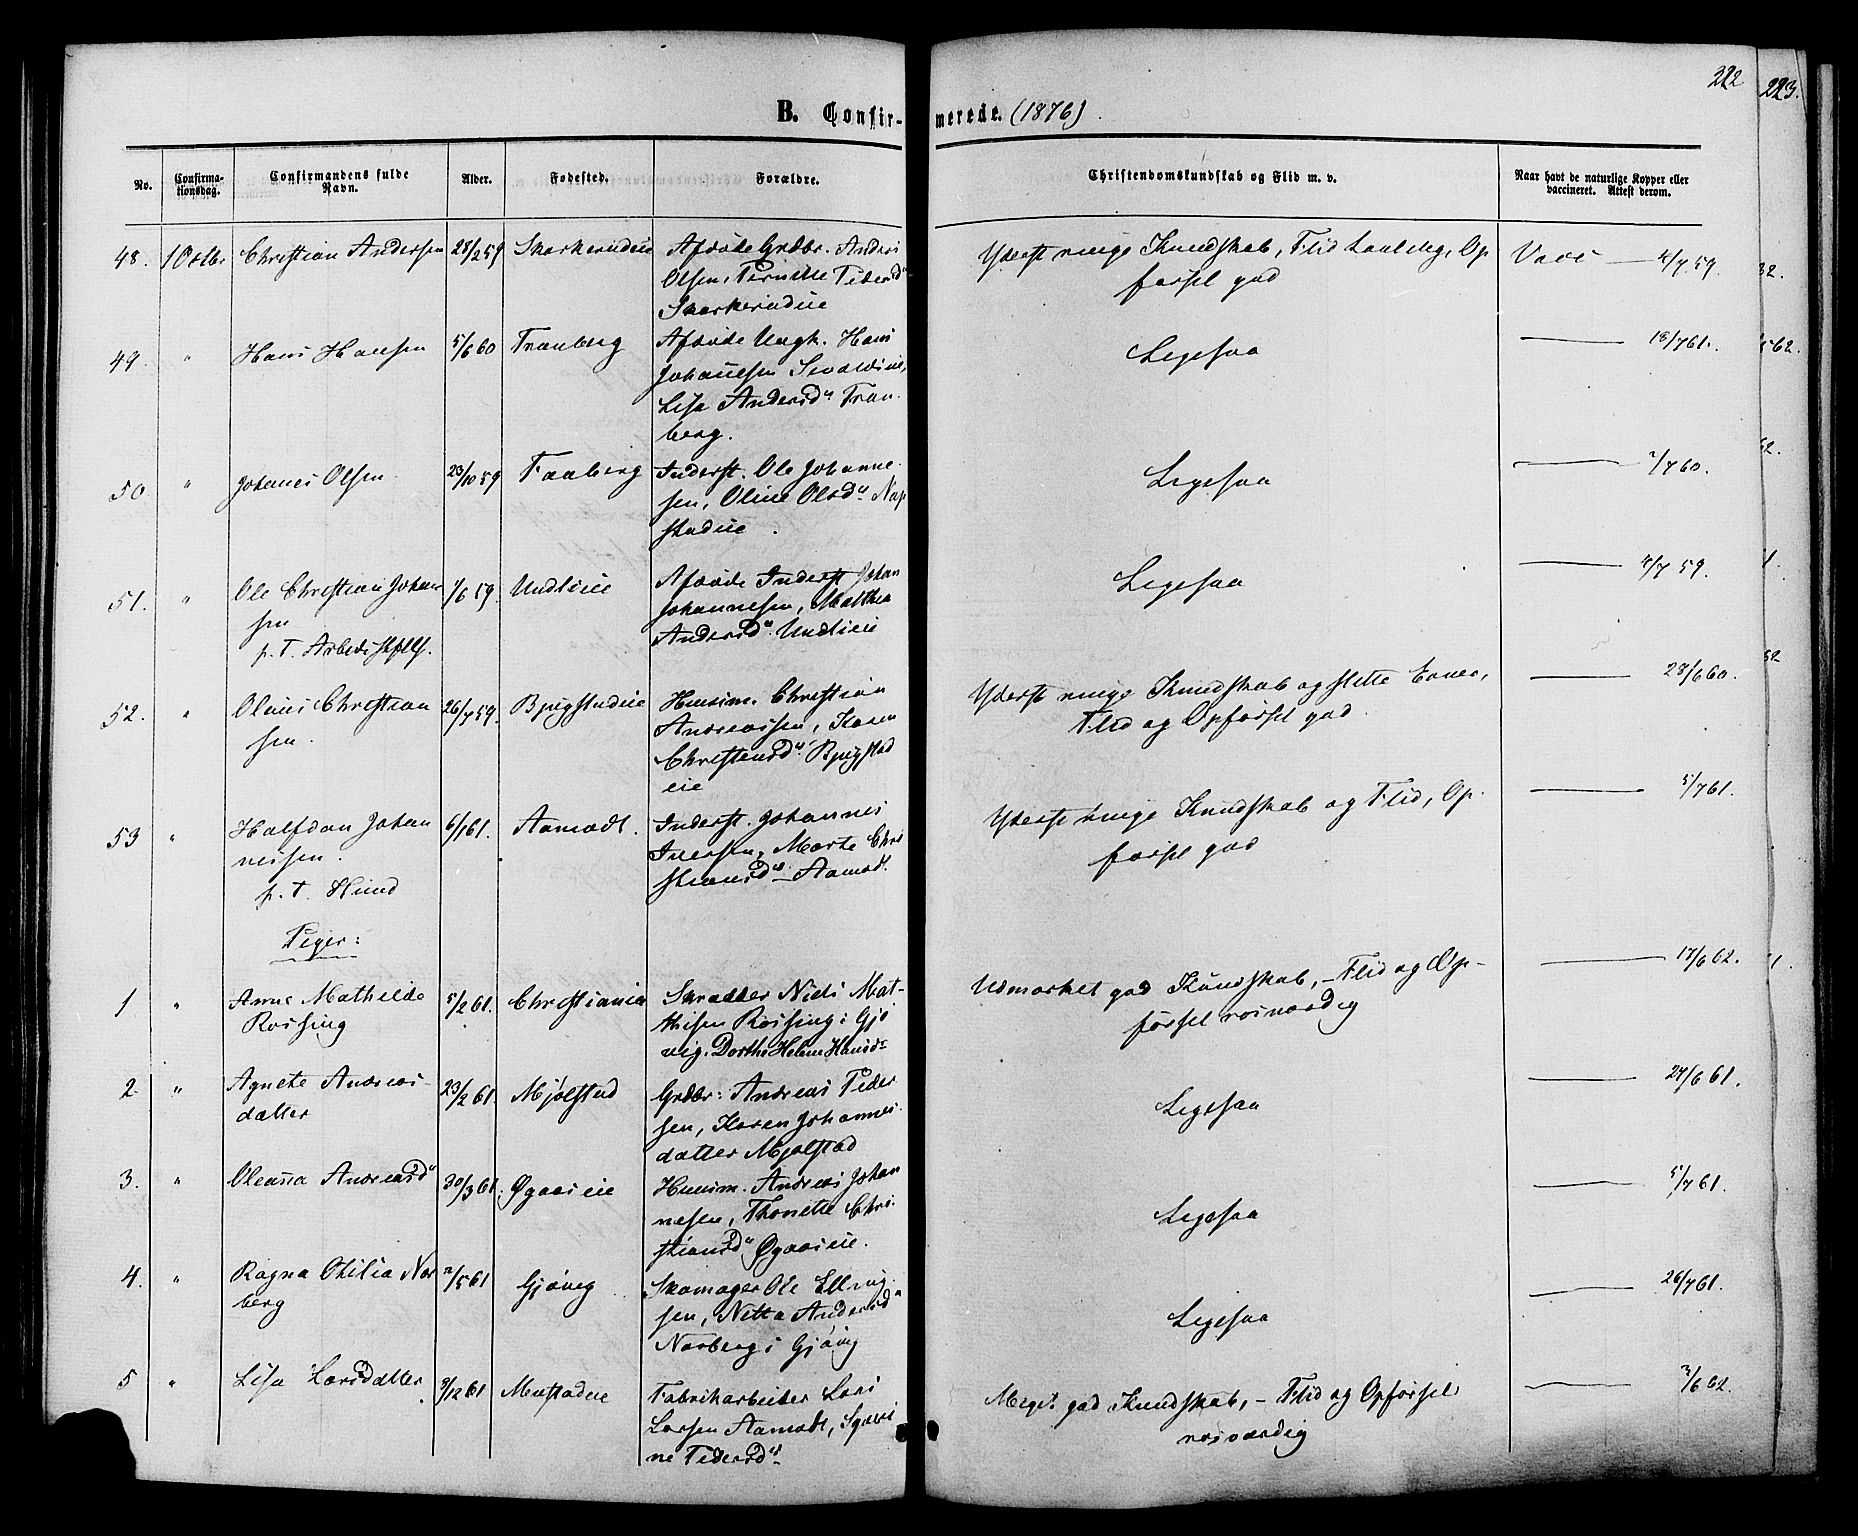 222
223.
B. Confir-
merede. (1876).
No.
Confirma-
tionsdag.
Confirmandens fulde
Navn.
Alder.
Fødested.
Forældre.
Christendomskundskab og Flid m. v.
Naar havt de naturlige Kopper eller
vaccineret. Attest derom.
48. 1 Octbr Christian Andersen 28/2 59 Skarkerudeie
Afdøde Grdbr. Anders
Olsen, Pernille Pedersd"
Skarkerudeie
Yderst ringe Kundskab, Flid taalelig, Op
førsel god
Vacc — 4/7 59.
49. " Hans Hansen 5/6 60 Tranberg
Afdøde Ungk. Hans
Johannesen
Lisa Andersd" Tran-
berg.
Ligesaa
— 18/7 61.
50 " Johanes Olsen 23/10 59 Faaberg
Inderst. Ole Johanne-
sen, Oline Olsd"
Ligesaa
— 7/7 60.
51. " Ole Christian Johan
sen
p. T.
1/6 59. Undlieie
Afdøde Inderst Johan
Johannesen, Malthea
Andersd" Undlieie
Ligesaa
— 4/7 59.
52. " Olaus Christian
sen.
26/7 59. Bjugstadeie
Husm. Christian
Andreassen, Karen
Christensd" Bjugstad
eie
Yderst ringe Kundskab og slette Evner,
Flid og Opførsel god.
— 28/6 60.
53 " Halfdan Johan
nessen.
p. T. Hund
6/1 61. Aamodt.
Inderst. Johannes
Iversen, Marte Chri
stiansd" — Aamodt.
Yderst ringe Kundskab og Flid, Op-
førsel god
— 5/7 61.
Piger:
1 " Anne Mathilde
Rossing
5/2 61. Christiania
Skrædder Niels Mat-
thisen Rossing i Gjø
vig. Dorthe Helene Hansd"
Udmærket god Kundskab, — Flid og Op-
førsel rosværdig
— 17/6 62.
2 " Agnete Andreas-
datter
23/2 61. Mjølstad
Grdbr: Andreas Peder
sen, Karen Johannes-
datter Mjølstad
Ligesaa
— 27/6 61.
3. " Oleana Andreasd" 30/3 61. Øgaaseie
Husm. Andreas Johan
nesen, Thonette Chri-
stiansd" Øgaaseie.
Ligesaa
— 5/7 61.
4. " Ragna Othilia Nor
berg
2/5 61 Gjøvig
Skomager Ole Elling-
sen, Netta Andersd"
Norberg i Gjøvig
Ligesaa
— 26/7 61.
5 " Lisa Larsdatter. 9/12 61 Menstadeie
Fabrikarbeider Lars
Larsen Aamodt,
ne Pedersd"
Meget god Kundskab, — Flid og Opførsel
rosværdig
— 3/6 62.